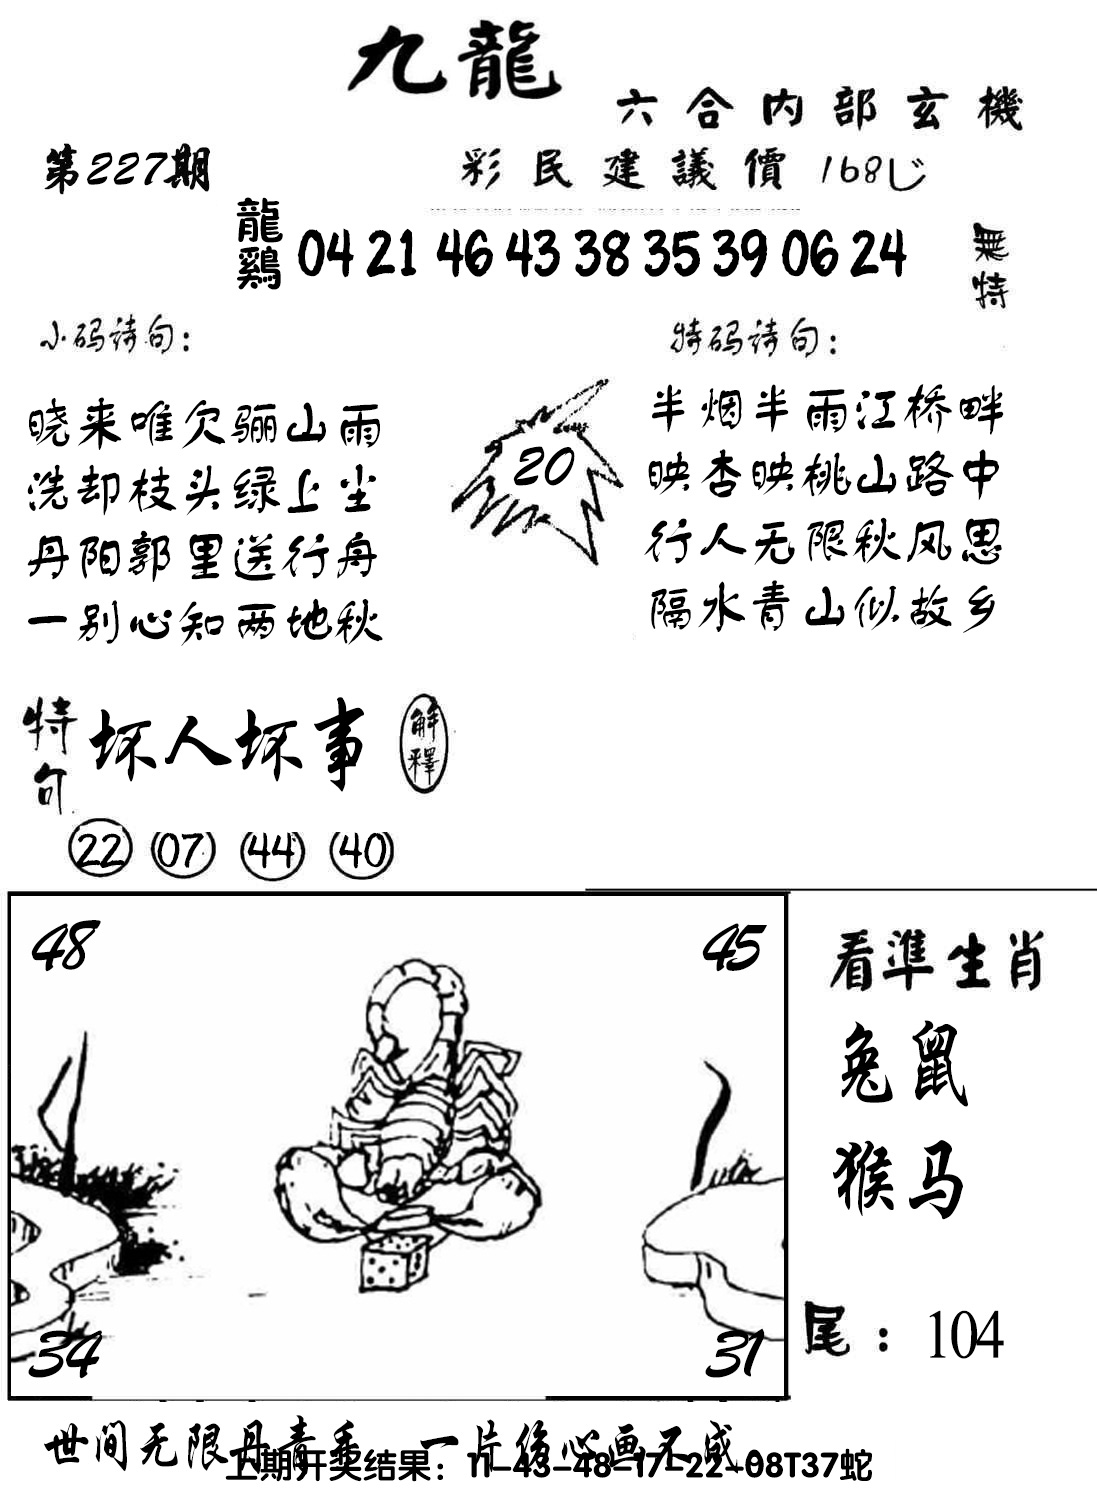 九龍
六合内部玄機
第227期
彩民建議價 168
龍鷄 04 21 46 43 38 35 39 06 24 無特
小码诗句：
晓来唯欠骊山雨
洗却枝头绿上尘
丹阳郭里送行舟
一别心知两地秋
20
特码诗句：
半烟半雨江桥畔
映杏映桃山路中
行人无限秋风思
隔水青山似故乡
特句 坏人坏事 解釋
22 07 44 40
48 45
34 31
看準生肖
兔鼠
猴马
尾：104
世间无限丹青手 一片伤心画不成
上期开奖结果：11-43-48-17-22-08T37蛇